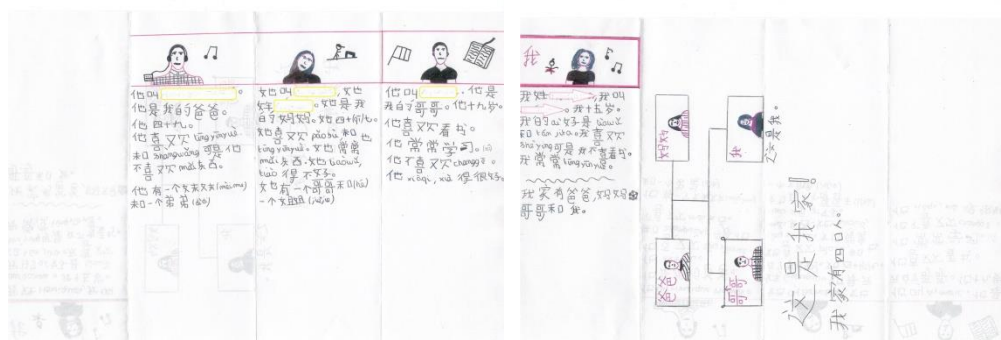 他叫
他是我的爸爸。
他四十九。
他喜欢tīngyīnyuè
和shangwǎng可是他
不喜欢mǎi东西。
他有一个妹妹(mèi mei)
和一个弟弟(dìdi)
她叫，她
姓。她是我
的妈妈。她四十
她喜欢pǎobù和
tīngyīnyuè。她常常
mǎi东西。她tiàowǔ,
tiào得不好。
她有一个哥哥和(hé)
一个姐姐(jiějie)
他叫。他是
我的哥哥。他十九岁。
他喜欢看书。
他常常学习。
他不喜欢changgē。
他xiàqí,xià得很好。
我
我姓，我叫
。我十五岁。
我的àihào是tiàowǔ
和。我喜欢
shèyǐng可是我不喜看书。
我常常tīngyīnyuè。
我家有爸爸,妈妈
哥哥和我。
妈妈
我
爸爸
哥哥
这是我。
这是我家!
我家有四口人。